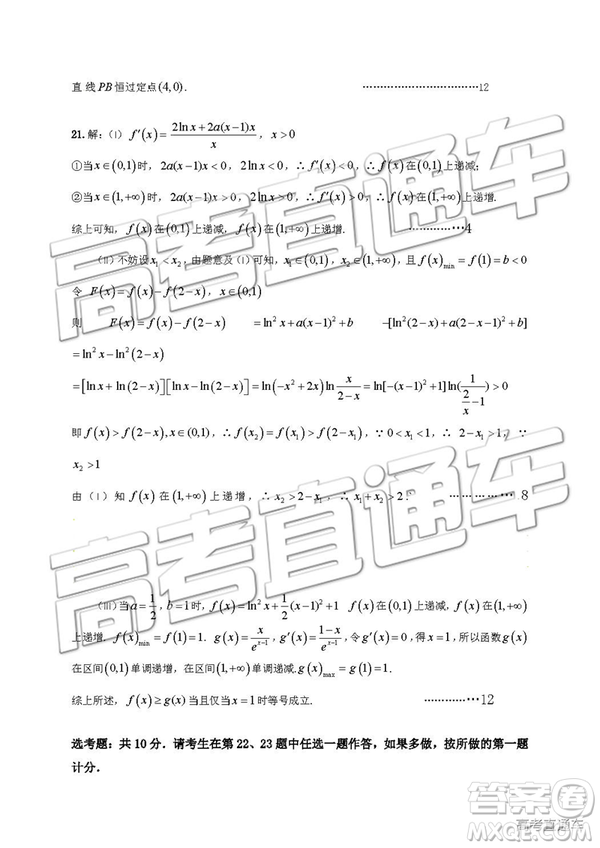 直线PB恒过定点(4,0). ………………………………12
21.解：(I) f′(x)=(2ln x+2a(x−1)x)/x，x>0
①当x∈(0,1)时，2a(x−1)x<0，2ln x<0，∴f′(x)<0，∴f(x)在(0,1)上递减；
②当x∈(1,+∞)时，2a(x−1)x>0，2ln x>0，∴f′(x)>0，∴f(x)在(1,+∞)上递增.
综上可知，f(x)在(0,1)上递减，f(x)在(1,+∞)上递增. ……………4
(II) 不妨设x₁<x₂，由题意及(I)可知，x₁∈(0,1)，x₂∈(1,+∞)，且f(x)min=f(1)=b<0
令 F(x)=f(x)−f(2−x)，x∈(0,1)
则 F(x)=f(x)−f(2−x) =ln²x+a(x−1)²+b −[ln²(2−x)+a(2−x−1)²+b]
=ln²x−ln²(2−x)
=[ln x+ln(2−x)][ln x−ln(2−x)]=ln(−x²+2x)ln x/(2−x)=ln[−(x−1)²+1]ln(1/(2/x−1))>0
即f(x)>f(2−x),x∈(0,1)，∴f(x₂)=f(x₁)>f(2−x₁)，∵0<x₁<1，∴ 2−x₁>1，∵
x₂>1
由(I)知f(x)在(1,+∞)上递增，∴x₂>2−x₁，∴x₁+x₂>2. …………… 8
(III)当a=1/2，b=1时，f(x)=ln²x+1/2(x−1)²+1 f(x)在(0,1)上递减，f(x)在(1,+∞)
上递增. f(x)min=f(1)=1. g(x)=x/eˣ⁻¹，g′(x)=(1−x)/eˣ⁻¹，令g′(x)=0，得x=1，所以函数g(x)
在区间(0,1)单调递增，在区间(1,+∞)单调递减.g(x)max=g(1)=1.
综上所述，f(x)≥g(x)当且仅当x=1时等号成立. …………12
选考题：共10分．请考生在第22、23题中任选一题作答，如果多做，按所做的第一题
计分．
高考直通车
高考直通车
答案圈
高考直通车
MXQE.COM